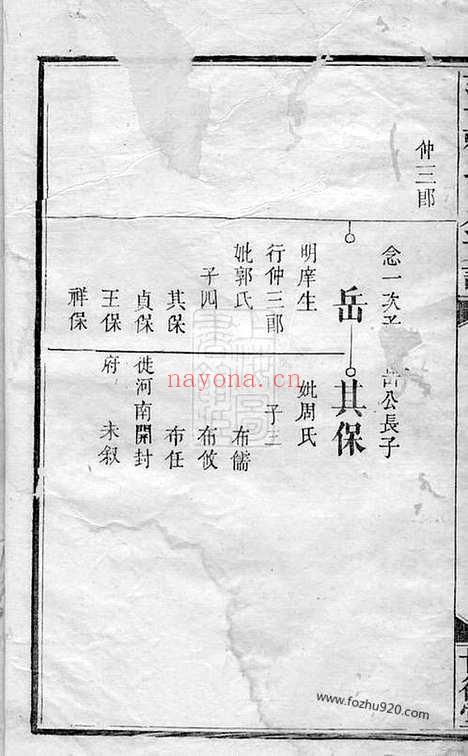 仲三郎
念一次子
岳
明庠生
行仲三郎
妣郭氏
子四
其保
貞保
王保
祥保
公長子
其保
妣周氏
子三
布儒
布攸
布任
徙河南開封
府 未叙
nayona.cn
www.fozhu920.com